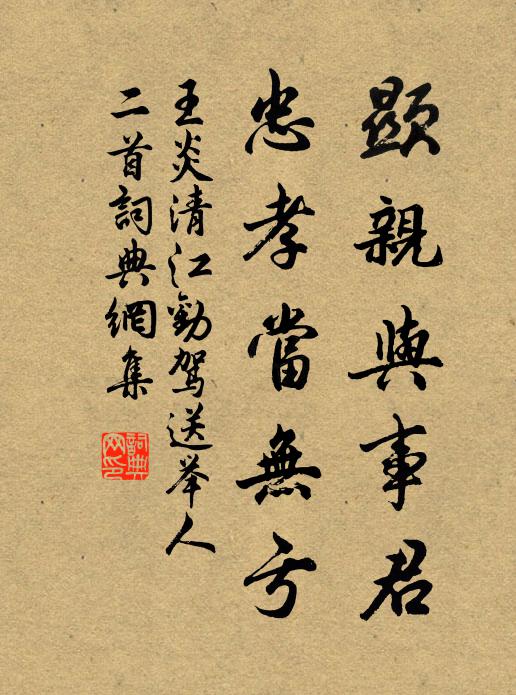 顯親與事君
忠孝當無亏
王炎清江勸駕送举人
二首詞典網集
詞典网印